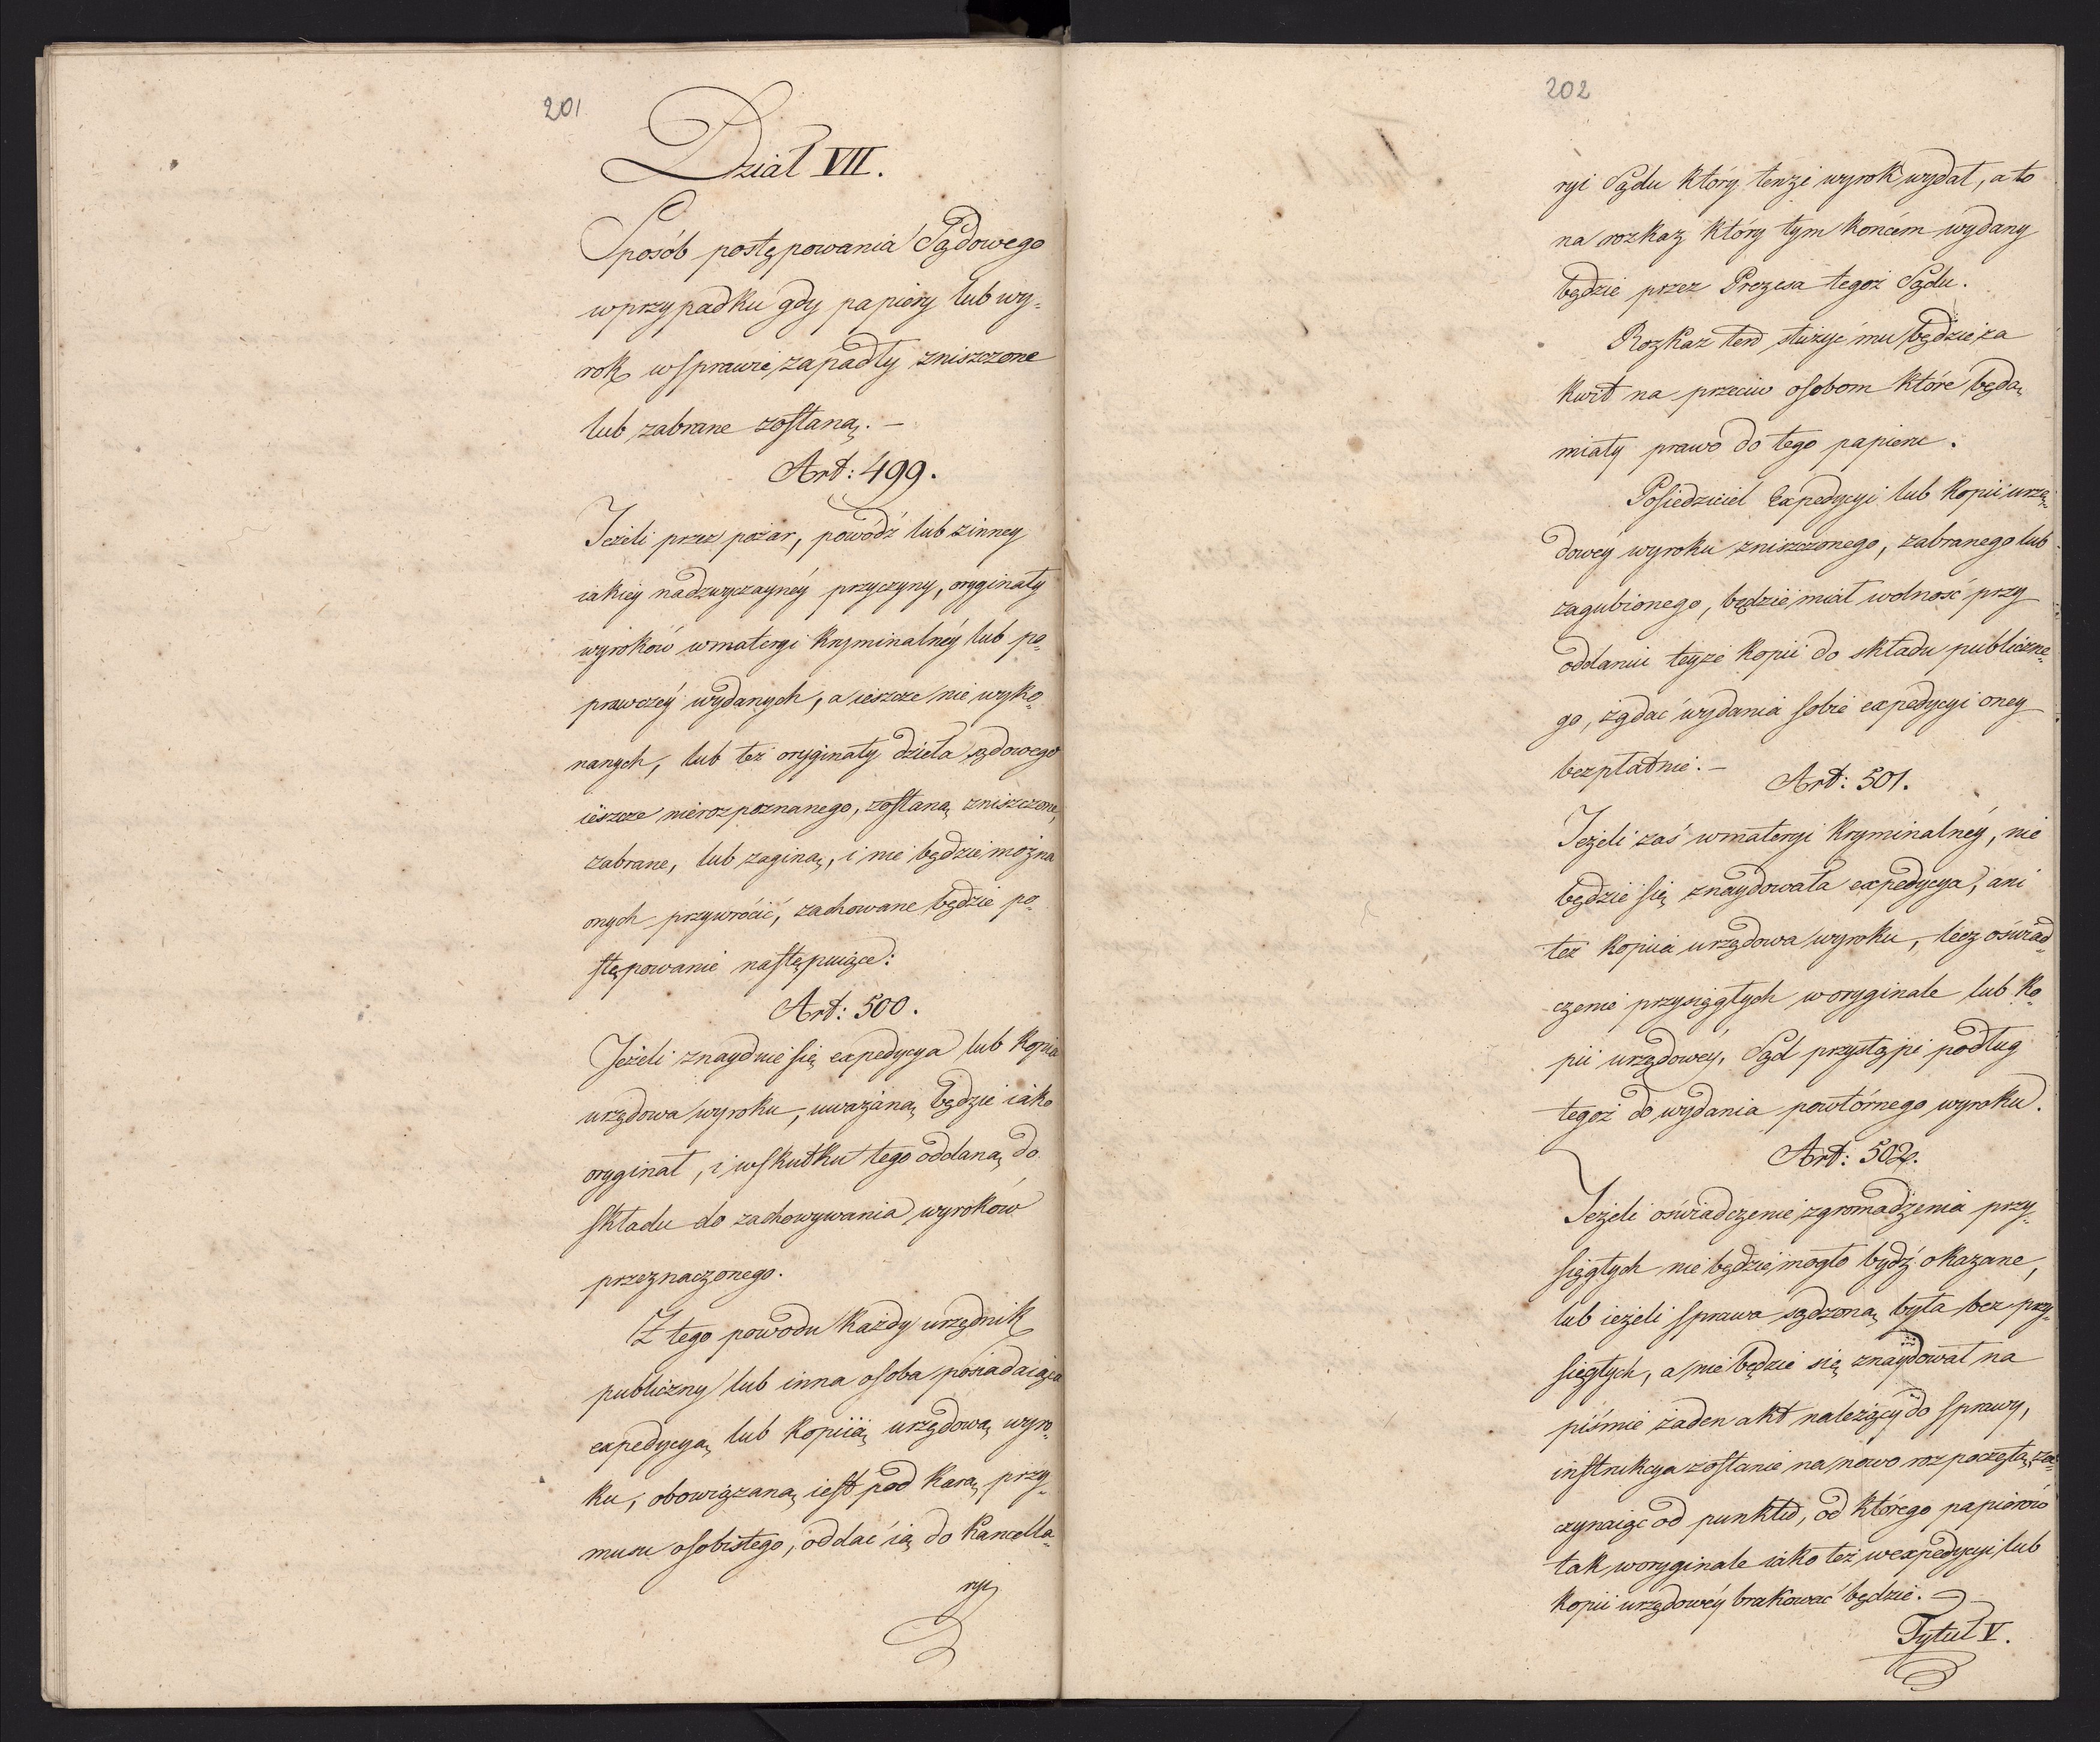 201
Dział VII.
Sposób postępowania Sądowego
w przypadku gdy papiery lub wy=
rok w sprawie zapadły zniszczone
lub zabrane zostaną. —
Art: 499.
Jeżeli przez pożar, powódź lub z inney
iakiey nadzwyczaynéy przyczyny, oryginały
wyroków w materyi Kryminalnéy lub po=
prawczéy wydanych, a ieszcze nie wyko=
nanych, lub też oryginały dzieła sądowego
ieszcze nierozpoznanego, zostaną zniszczone,
zabrane, lub zaginą, i nie będzie można
onych przywrócić, zachowane będzie po=
stępowanie następuiące:
Art: 500.
Jeżeli znaydzie się expedycya lub Kopia
urzędowa wyroku, uważaną będzie iako
oryginał, i w skutku tego oddaną do
składu do zachowywania wyroków
przeznaczonego.
Z tego powodu Każdy urzędnik
publiczny lub inna osoba posiadaiąca
expedycyą lub Kopiią urzędową wyro=
ku, obowiązaną iest pod Karą przy=
musu osobistego, oddać ią do Kancella=
ryi
202
ryi Sądu który tenże wyrok wydał, a to
na rozkaz który tym końcem wydany
będzie przez Prezesa tegoż Sądu.
Rozkaz ten służyć mu będzie za
Kwit na przeciw osobom które będą
miały prawo do tego papieru.
Posiedziciel Expedycyi lub Kopii urzę=
dowéy wyroku zniszczonego, zabranego lub
zagubionego, będzie miał wolność przy
oddaniu teyże Kopii do składu publiczne=
go, żądać wydania sobie expedycyi oney
bezpłatnie. —
Art: 501.
Jeżeli zaś w materyi Kryminalnéy, nie
będzie się znaydowała expedycya, ani
też Kopiia urzędowa wyroku, lecz oświad=
czenie przysięgłych w oryginale lub Ko=
pii urzędowéy, Sąd przystąpi podług
tegoż do wydania powtórnego wyroku.
Art: 502.
Jeżeli oświadczenie zgromadzenia przy=
sięgłych nie będzie mogło bydź okazane,
lub ieżeli sprawa sądzoną była bez przy=
sięgłych, a nie będzie się znaydował na
piśmie żaden akt należący do sprawy,
instrukcya zostanie na nowo rozpoczętą, za=
czynaiąc od punktu, od którego papierów
tak w oryginale iako też w expedycyi lub
Kopii urzędowéy brakować będzie. —
Tytuł V.